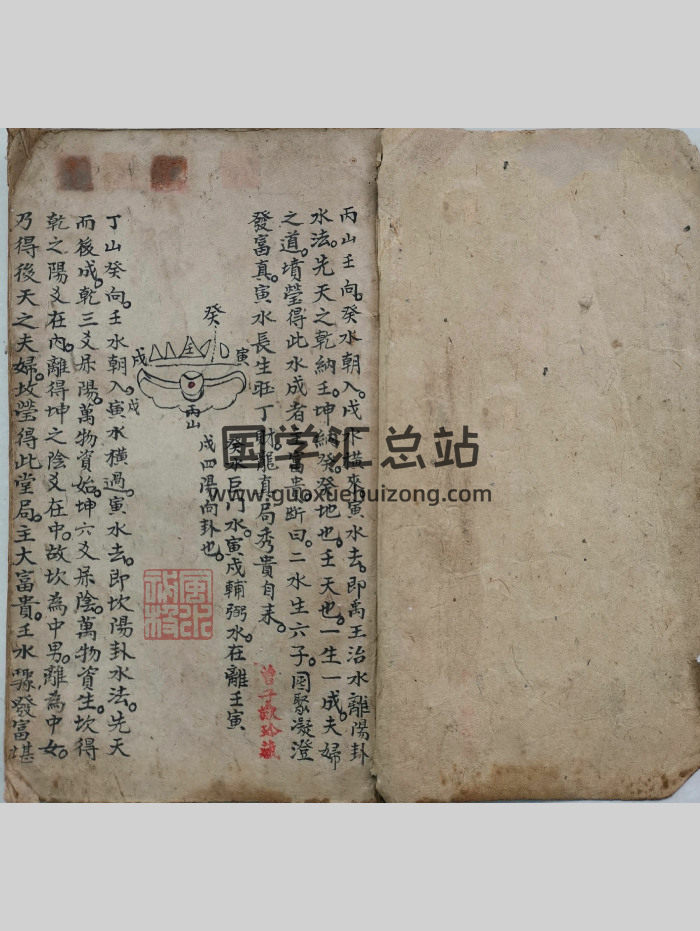 丙山壬向。癸水朝入。戌水橫來寅水去。即禹王治水離陽卦
水法。先天之乾納壬。坤納癸。癸地也。壬天也。一生一成。夫婦
之道。墳瑩得此水成者主富貴。斷曰。二水生六子。團聚凝澄
發富真。寅水長生旺丁財。龍真局秀貴自来。
癸
寅
戌
戌
壬
丙山
癸水巨門水。寅戌輔弼水。在離壬寅
戌四陽向卦也。
丁山癸向。壬水朝入。寅水橫過。寅水去。即坎陽卦水法。先天
而後成。乾三爻屬陽。萬物資始。坤六爻屬陰。萬物資生。坎得
乾之陽爻在內。離得坤之陰爻在中。故坎為中男。離為中女。
乃得後天之夫婦。坟瑩得此堂局。主大富貴。壬水驟發富甚
曾子敬珍藏
国学汇总站
www.guoxuehuizong.com